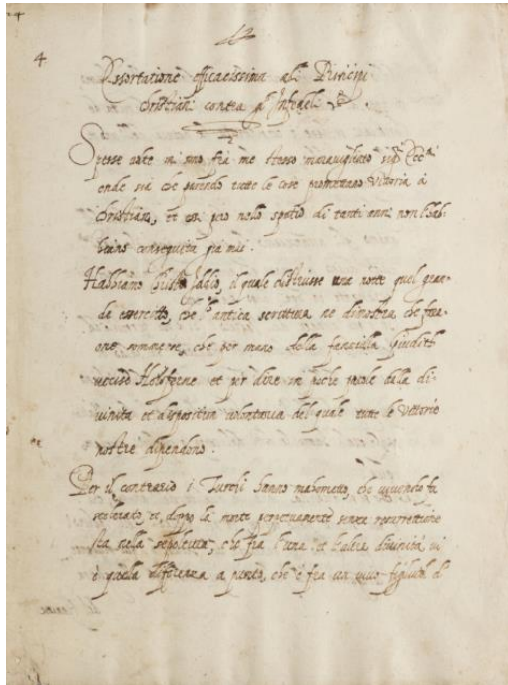 4
Essortatione efficacissima alli Principi
Christiani contra gl'Infideli
Spesse volte mi sono frà me stesso maravigliato
onde sia che parendo tutte le cose promettano Vittoria à
Christiani, et con però nello spatio di tanti anni non l'hab-
biano conseguita già mai.
Habbiamo Iddio, il quale distrusse una notte quel gran-
de essercito, che l'antica scrittura ne dimostra che
che per mano della fanciulla Giudith
uccise Holoferne et per dire in poche parole dalla di-
vinità et dispositiva volontaria del quale tutte le Vittorie
nostre dipendono.
Per il contrario i Turchi hanno macometto, che vivendo fu
scelerato, et dopò la morte perpetuamente senza resurrettione
sta nella sepoltura, che fra l'una et l'altra divinità vi
è quella differenza a punto, che è fra un vivo figliolo d